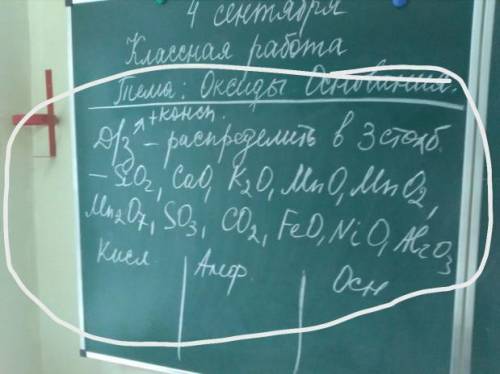 4 сентября
Классная работа
Тема: Оксиды Основания.
+ консп.
Д/з – распределить в 3 столб.
– SO2, CaO, K2O, MnO, MnO2,
Mn2O7, SO3, CO2, FeO, NiO, Al2O3
Кисл Амф. Осн